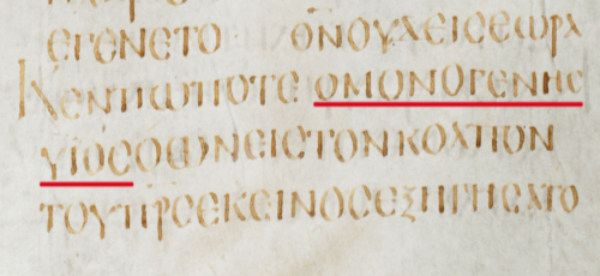 ΕΓΕΝΕΤΟ ΘΝΟΥΔΕΙϹΕΩΡΑ
ΚΕΝΠΩΠΟΤΕ ΟΜΟΝΟΓΕΝΗϹ
ΥΙΟϹΟΩΝΕΙϹΤΟΝΚΟΛΠΟΝ
ΤΟΥΠΡϹΕΚΕΙΝΟϹΕΞΗΓΗϹΑΤΟ